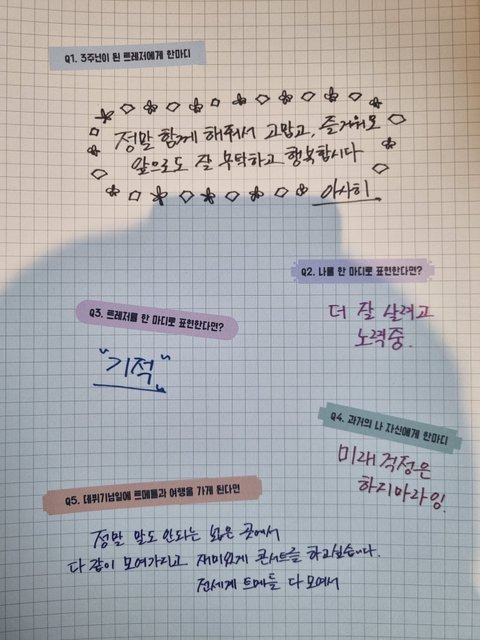 Q1. 3주년이 된 트레저에게 한마디
정말 함께 해줘서 고맙고, 즐거워요
앞으로도 잘 부탁하고 행복합시다
아사히
Q2. 나를 한 마디로 표현한다면?
더 잘 살려고
노력중.
Q3. 트레저를 한 마디로 표현한다면?
"기적"
Q4. 과거의 나 자신에게 한마디
미래 걱정은
하지마라잉
Q5. 데뷔기념일에 트메들과 여행을 가게 된다면
정말 말도 안되는 넓은 곳에서
다 같이 모여가지고 재미있게 콘서트를 하고싶습니다.
전세계 트메들 다 모여서